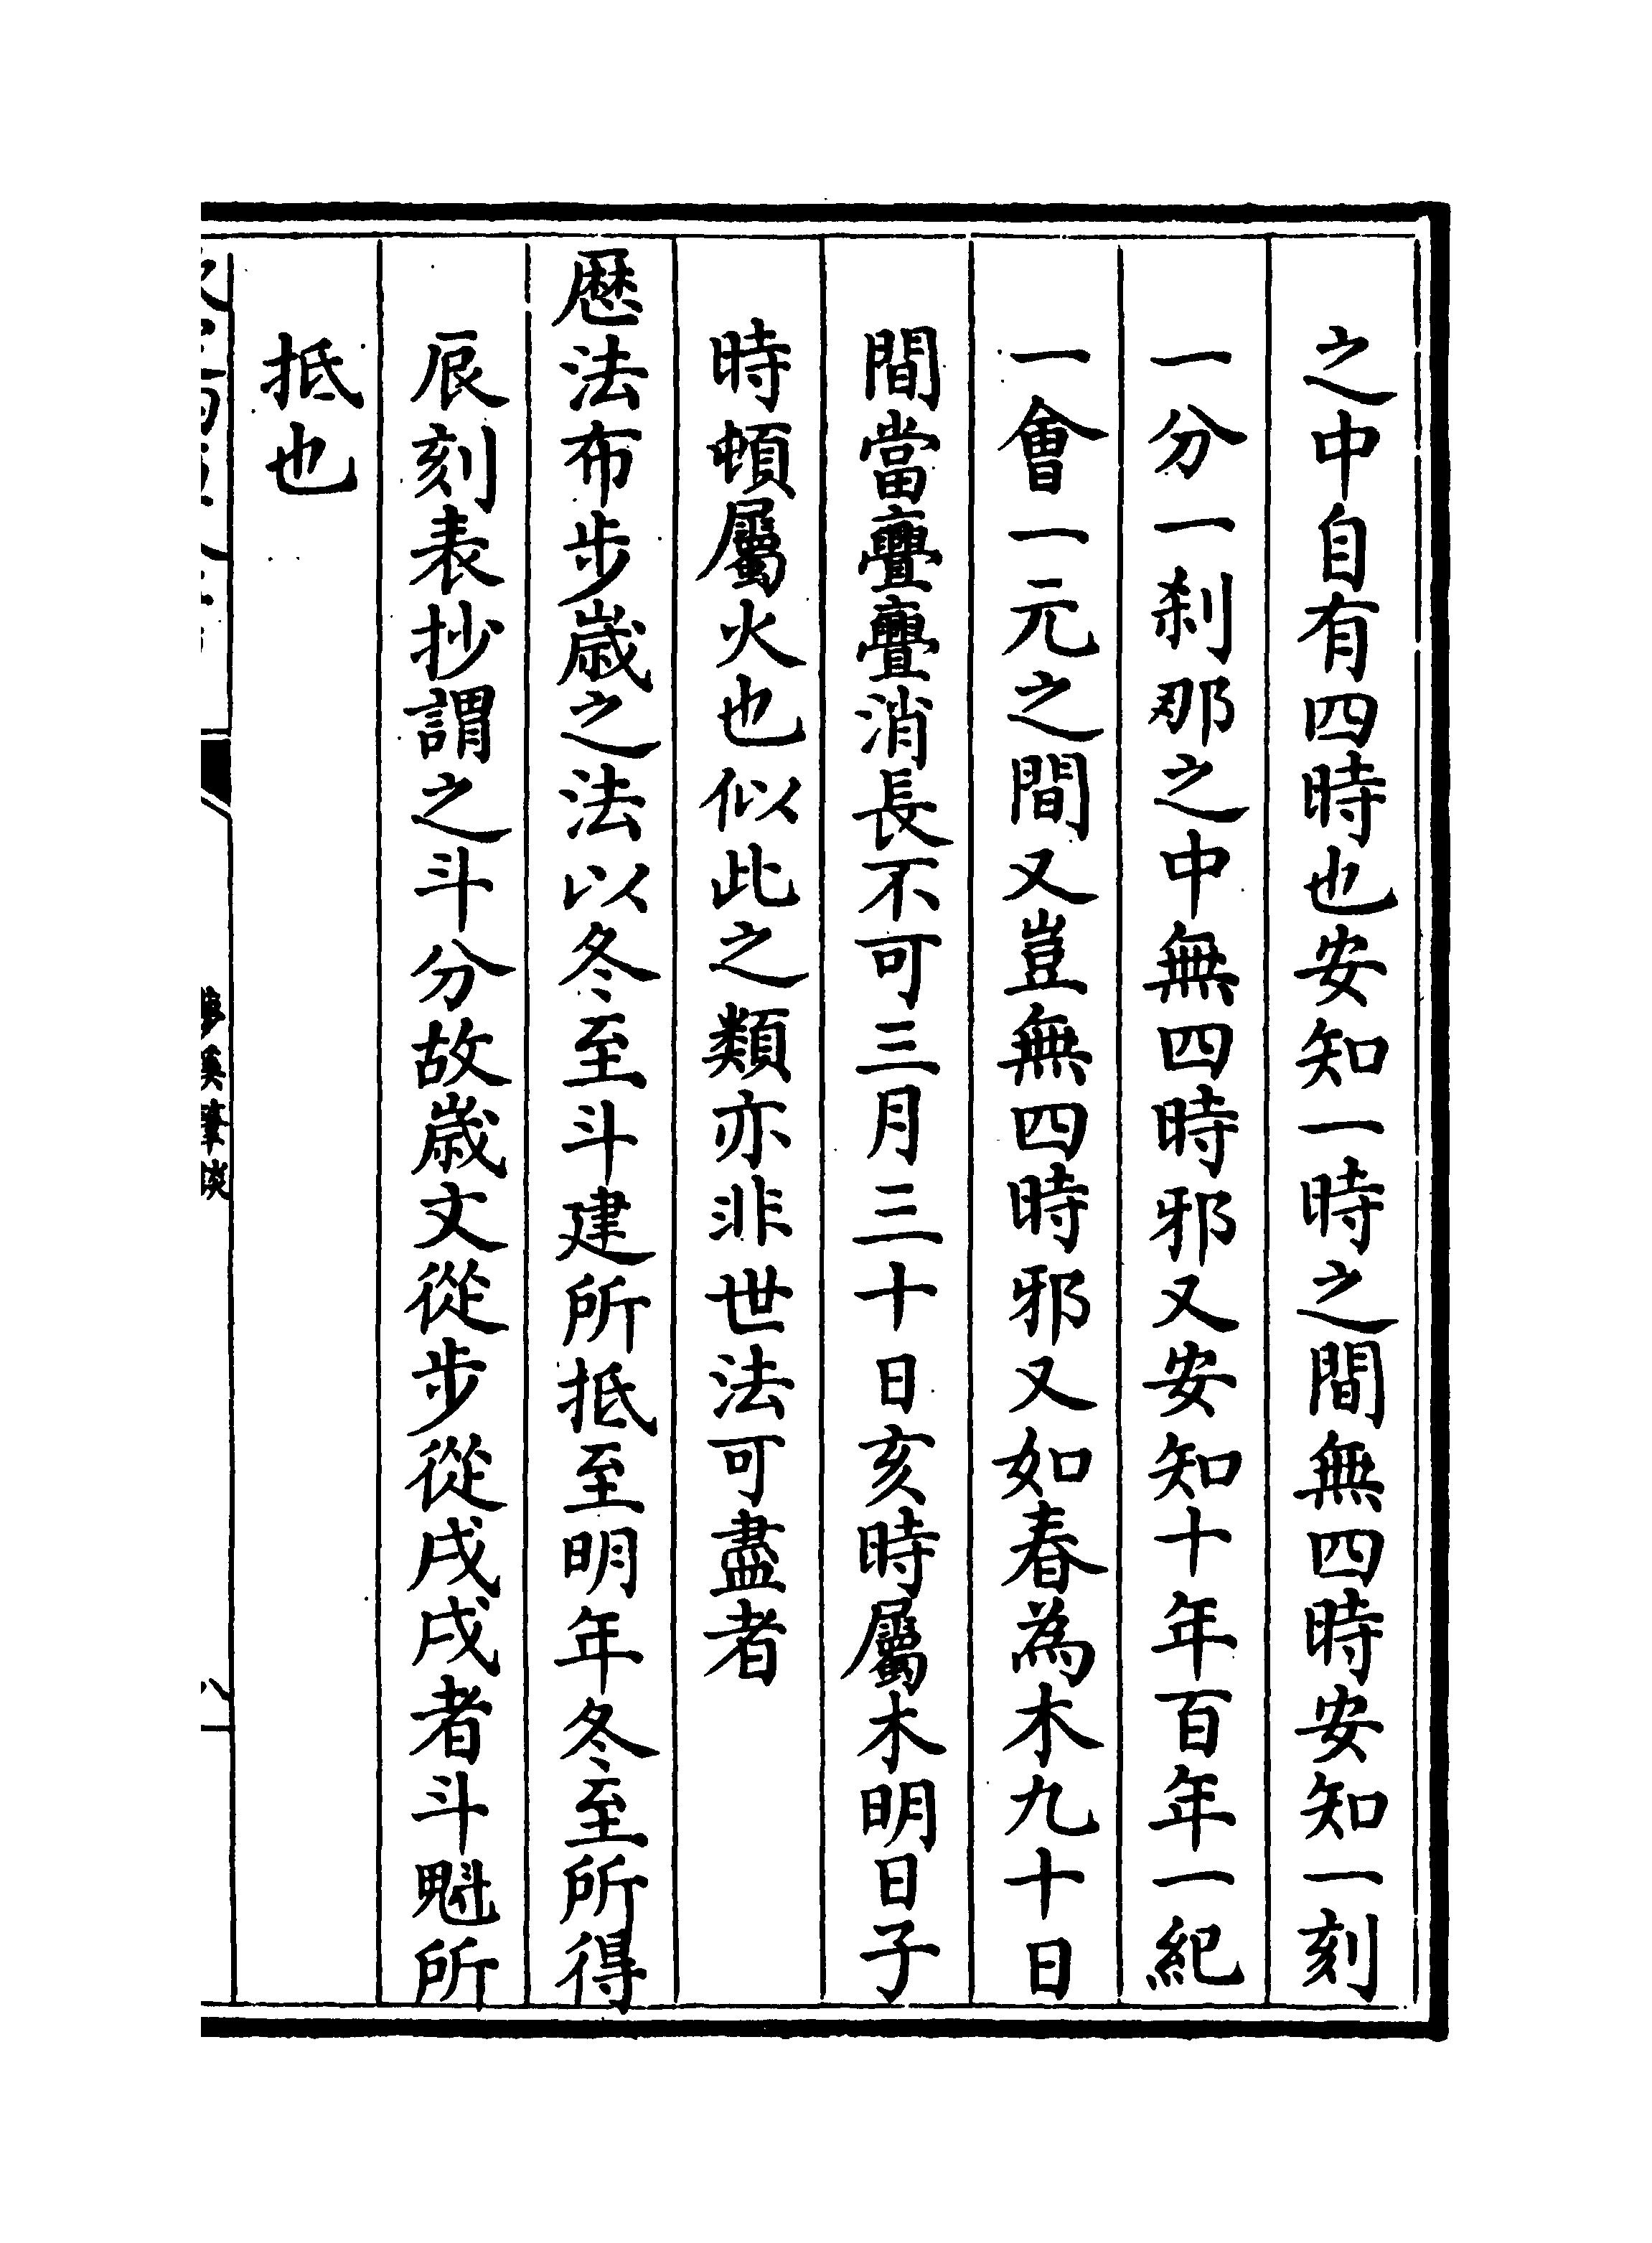 之中自有四時也安知一時之間無四時安知一刻
一分一刹那之中無四時邪又安知十年百年一紀
一會一元之間又豈無四時邪又如春為木九十日
間當亹亹消長不可三月三十日亥時屬木明日子
時頓屬火也似此之類亦非世法可盡者
厯法布步歲之法以冬至斗建所抵至明年冬至所得
辰刻表抄謂之斗分故歲文從步從戌戌者斗魁所
抵也
夢溪筆談
八